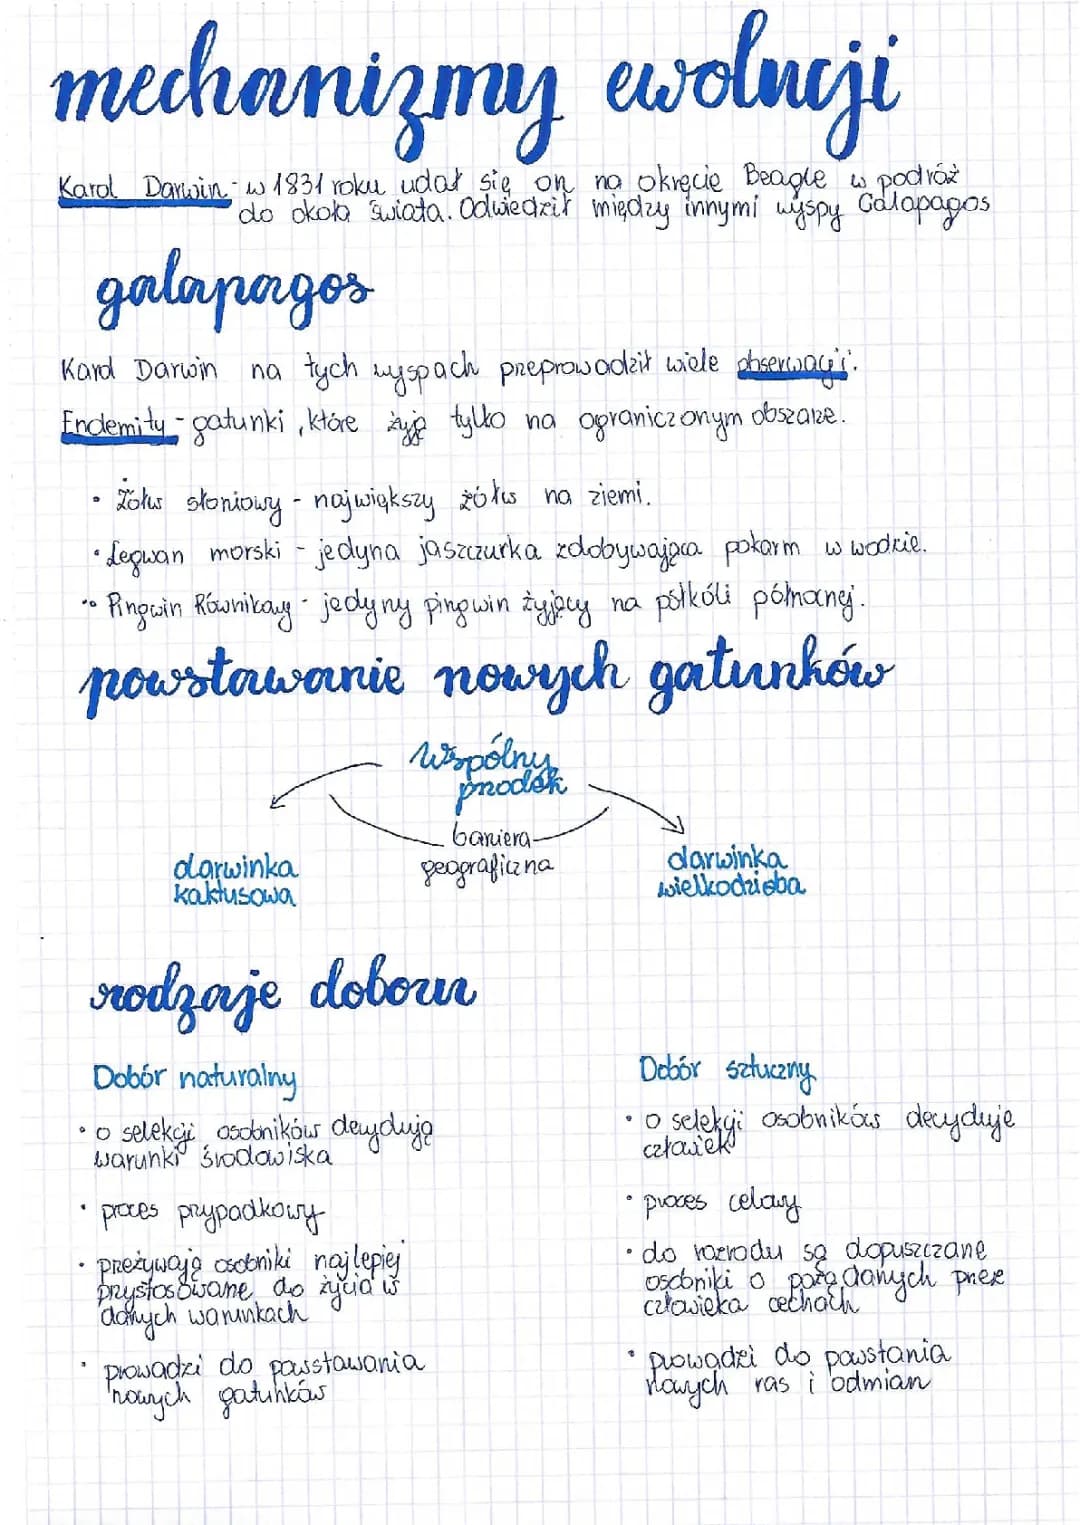 mechanizmy ewolucji
Karol Darwin - w 1831 roku udał się on na okręcie Beagle w podróż
do okoła świata. Odwiedził między innymi wyspy Galapagos
galapagos
Karol Darwin na tych wyspach przeprowadził wiele obserwacji.
Endemity - gatunki, które żyją tylko na ograniczonym obszarze.
• Żółw słoniowy - największy żółw na ziemi.
• Legwan morski - jedyna jaszczurka zdobywająca pokarm w wodzie.
• Pingwin Równikowy - jedyny pingwin żyjący na półkóli północnej.
powstawanie nowych gatunków
Wspólny
przodek
bariera
geograficzna
darwinka
kaktusowa
darwinka
wielkodzioba
rodzaje doboru
Dobór naturalny
• o selekcji osobników decydują
warunki środowiska
• proces przypadkowy
• przeżywają osobniki najlepiej
przystosowane do życia w
danych warunkach
• prowadzi do powstawania
nowych gatunków
Dobór sztuczny
• o selekcji osobników decyduje
człowiek
• proces celowy
• do rozrodu są dopuszczane
osobniki o pożądanych przez
człowieka cechach
• prowadzi do powstania
nowych ras i odmian